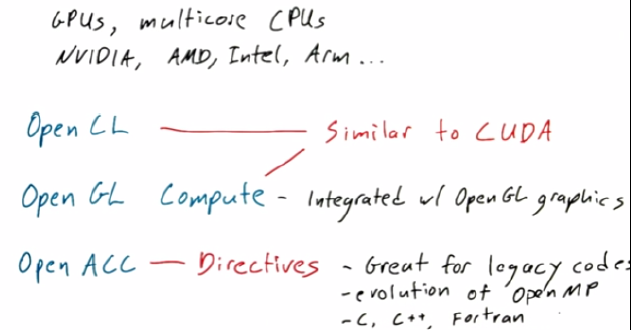 GPUs, multicore CPUs
NVIDIA, AMD, Intel, Arm...
Open CL — Similar to CUDA
Open GL Compute - Integrated w/ OpenGL graphics
Open ACC — Directives - Great for legacy codes
- evolution of OpenMP
- C, C++, Fortran